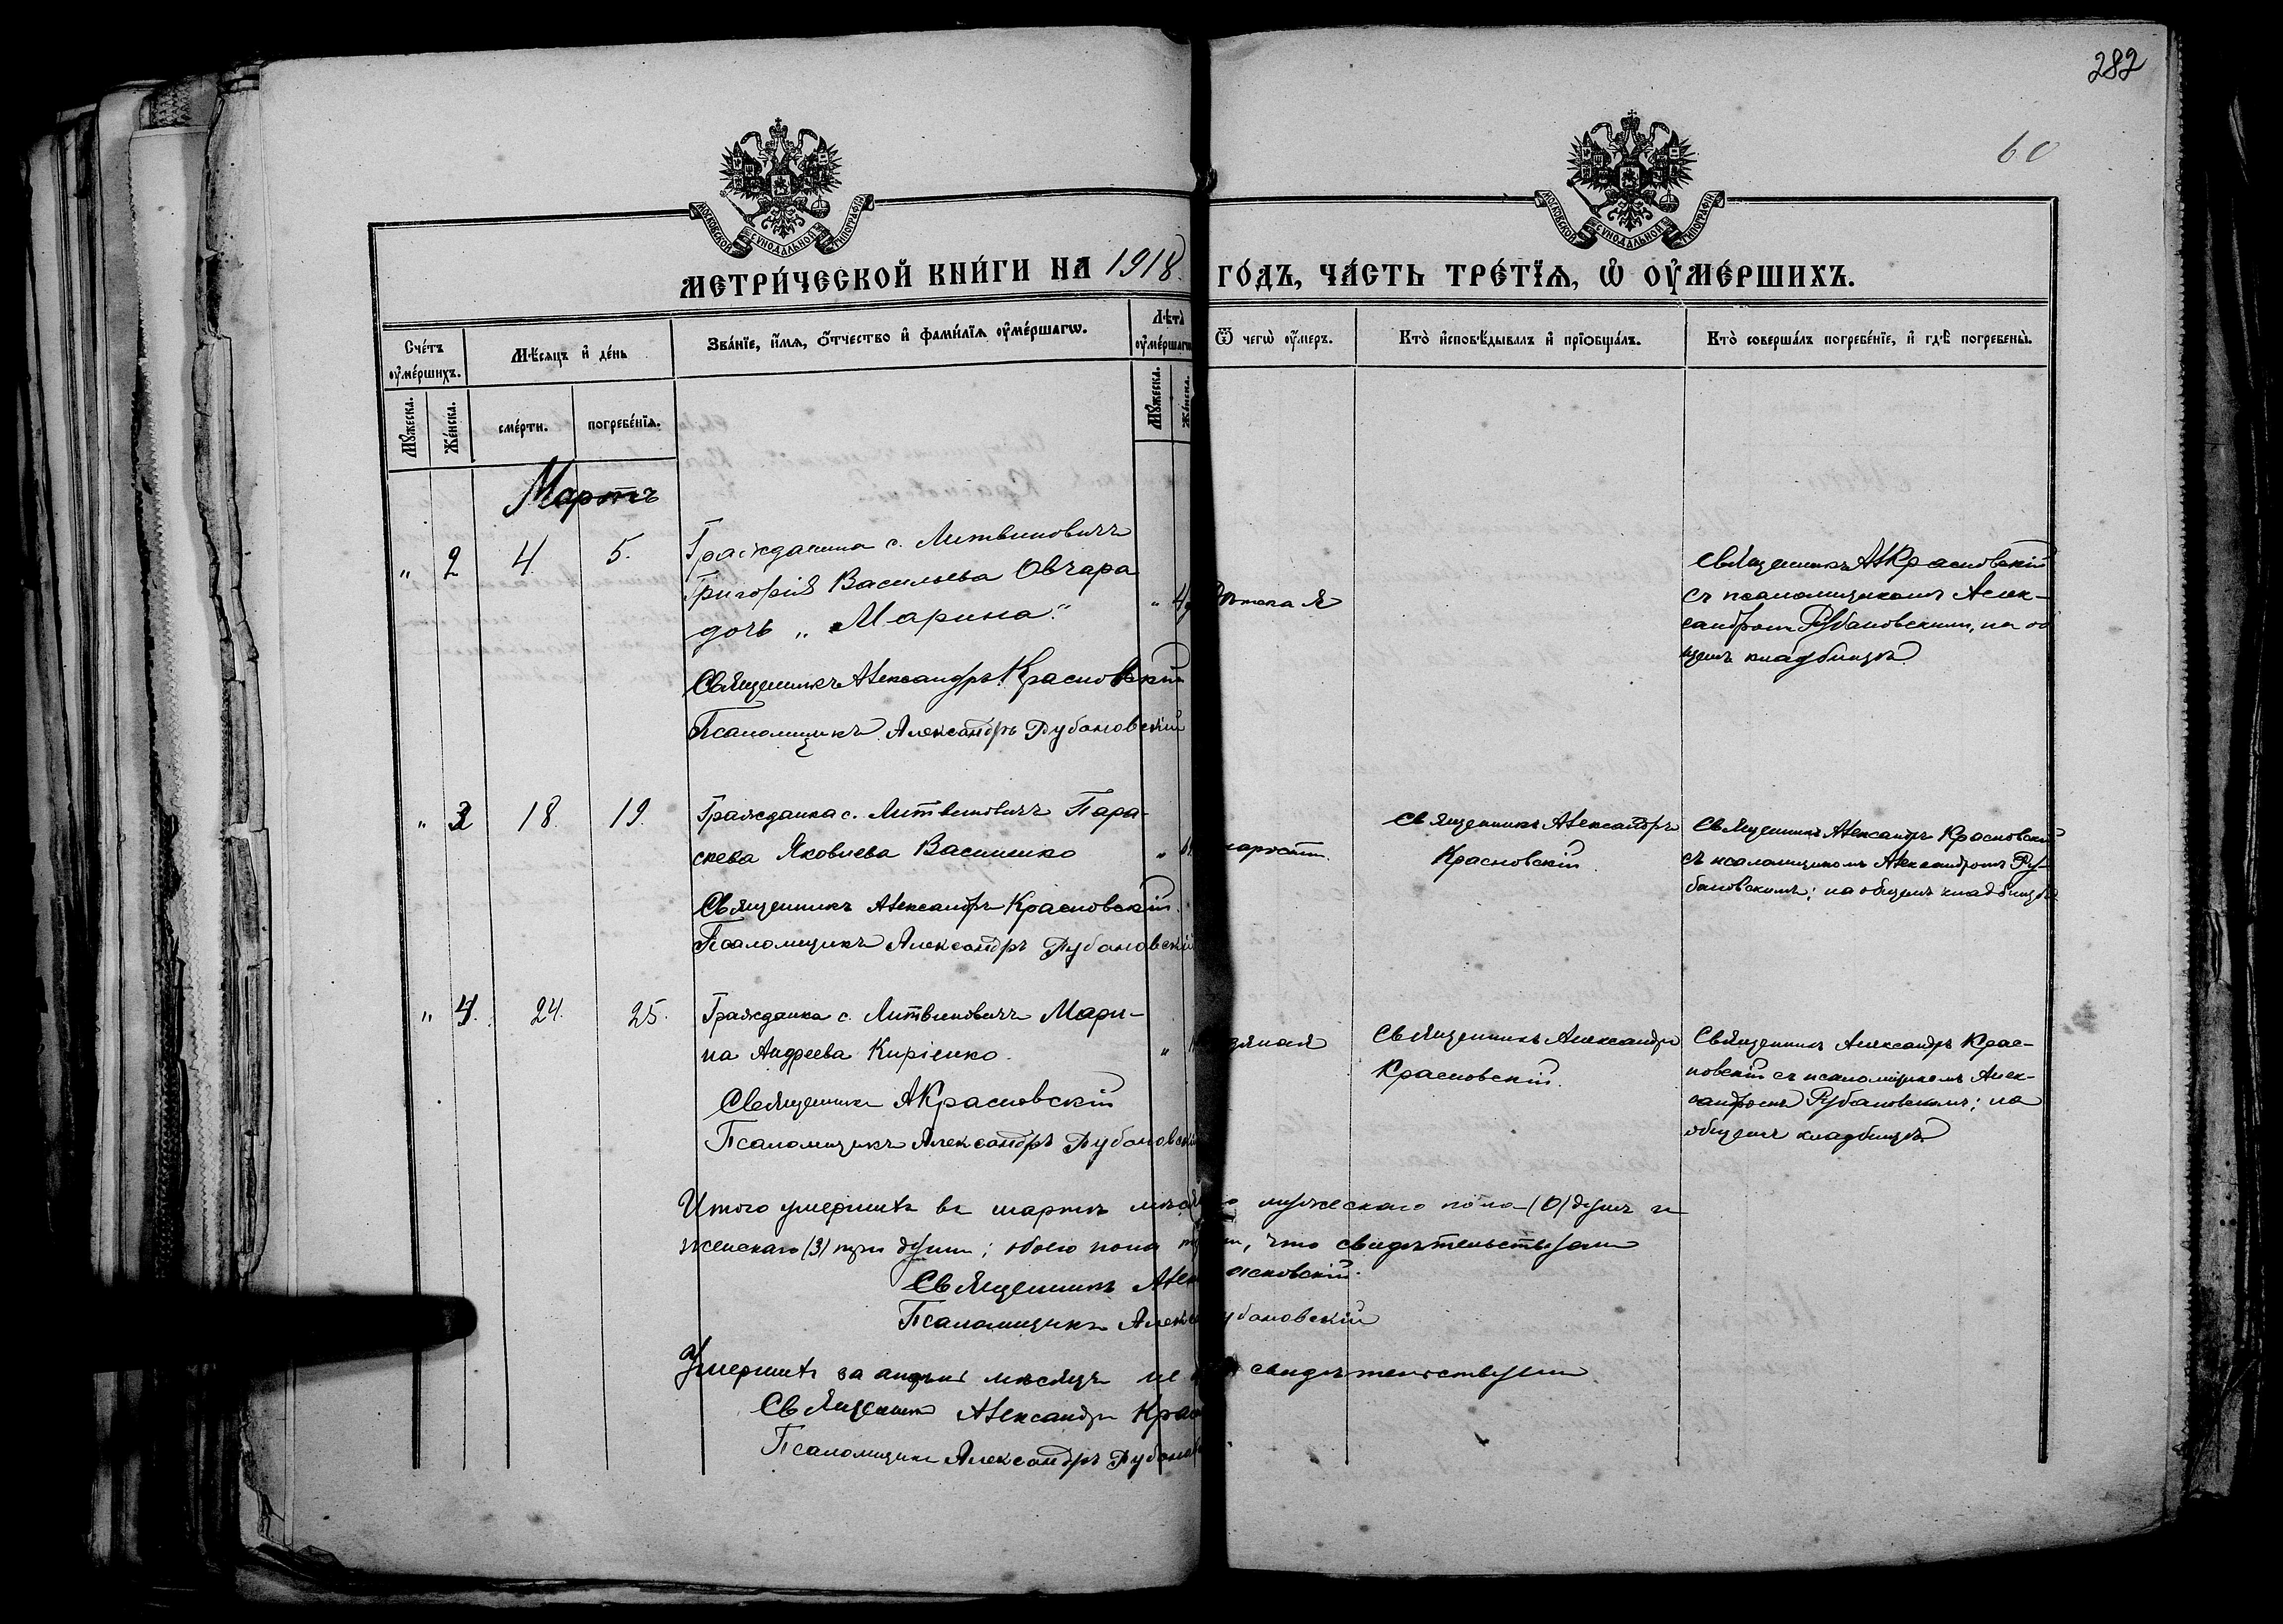 282
60
МОСКОВСКОЙ СѴНОДАЛЬНОЙ ТИПОГРАФІИ
МОСКОВСКОЙ СѴНОДАЛЬНОЙ ТИПОГРАФІИ
МЕТРИ́ЧЕСКОЙ КНИ́ГИ НА 1918 ГО́ДЪ, ЧА́СТЬ ТРЕ́ТЇѦ, Ѡ҆ ОУ҆МЕ́РШИХЪ.
Сче́тъ оу҆ме́ршихъ.
Мѣ́сяцъ и҆ де́нь
Зва́нїе, и҆́мѧ, ѻ҆́тчество и҆ фами́лїѧ оу҆ме́ршагѡ.
Лѣ́та оу҆ме́ршагѡ
Ѿ чегѡ̀ оу҆́меръ.
Кто̀ и҆сповѣ́дывалъ и҆ прїѻбща́лъ.
Кто̀ соверша́лъ погребе́нїе, и҆ гдѣ̀ погребены̀.
Мꙋ́жеска.
Же́нска.
сме́рти.
погребе́нїѧ.
Мꙋ́жеска.
Же́нска.
Мартъ
" 2 4. 5. Гражданина с. Литвиновичъ
Григорія Васильева Овчара
дочь „Марина."
Священникъ Александръ Красновскій
Псаломщикъ Александръ Рубановскій
Священникъ А Красновскій
съ псаломщикомъ Алек-
сандромъ Рубановскимъ, на об
щемъ кладбищѣ
" 3 18. 19. Гражданка с. Литвиновичъ Пара-
скева Яковлева Василенко
Священникъ Александръ Красновскій.
Псаломщикъ Александръ Рубановскій
старости.
Священникъ Александръ
Красновскій.
Священникъ Александръ Красновскій
съ псаломщикомъ Александромъ Ру-
бановскимъ; на общемъ кладбищѣ
" 4. 24. 25. Гражданка с. Литвиновичъ Мари-
на Андреева Киріенко.
Священникъ А Красновскій
Псаломщикъ Александръ Рубановскій
Священникъ Александръ
Красновскій.
Священникъ Александръ Крас-
новскій съ псаломщикомъ Алек-
сандромъ Рубановскимъ; на
общемъ кладбищѣ
Итого умершихъ въ мартѣ мѣся мужескаго пола (0) душъ и
женскаго (3) три души; обоего пола три, что свидѣтельствуемъ
Священникъ Алек асновскій.
Псаломщикъ Алекса убановскій
Умершихъ за апрѣль мѣсяцъ не свидѣтельствуемъ
Священникъ Александръ Крас
Псаломщикъ Александръ Рубанов